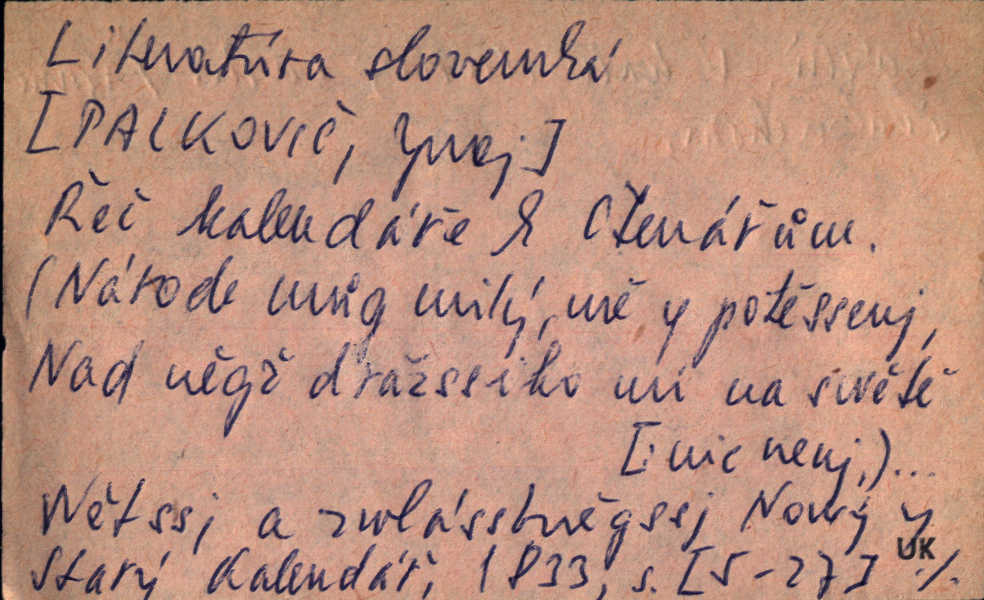 Literatúra slovenská
[PALKOVIČ, Juraj]
Řeč kalendáře k Čtenářům.
(Národe můg milý, mé y potěssenj,
Nad něgž dražssiho mi na swětě
[i nic nenj,)...
Wětssj a zwlásstněgssj Nowý y
Starý Kalendář, 1833, s. [5-27] ./.
UK